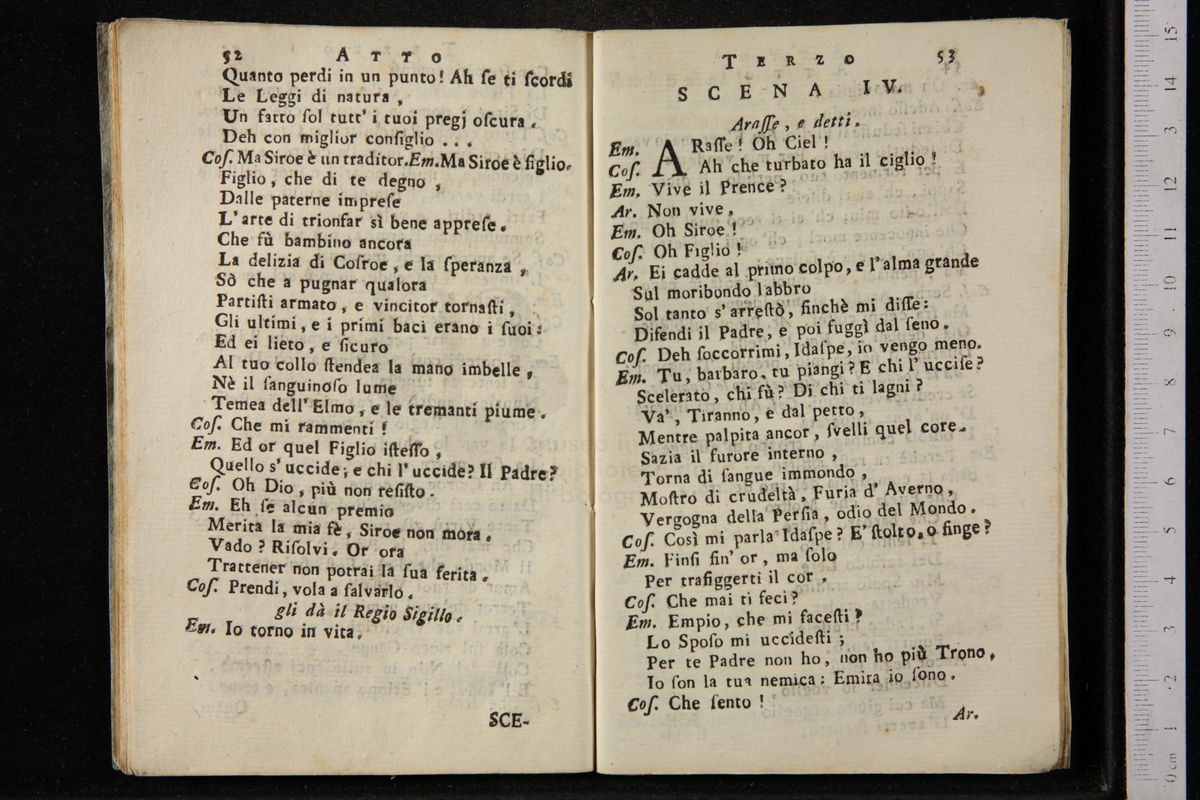 52 ATTO
Quanto perdi in un punto! Ah ſe ti ſcordi
Le Leggi di natura,
Un fatto ſol tutt' i tuoi pregj oſcura.
Deh con miglior conſiglio ...
Coſ. Ma Siroe è un traditor. Em. Ma Siroe è figlio.
Figlio, che di te degno,
Dalle paterne impreſe
L'arte di trionfar sì bene appreſe.
Che fù bambino ancora
La delizia di Coſroe, e la ſperanza,
Sò che a pugnar qualora
Partiſti armato, e vincitor tornaſti,
Gli ultimi, e i primi baci erano i ſuoi:
Ed ei lieto, e ſicuro
Al tuo collo ſtendea la mano imbelle,
Nè il ſanguinoſo lume
Temea dell'Elmo, e le tremanti piume.
Coſ. Che mi rammenti!
Em. Ed or quel Figlio iſteſſo,
Quello s'uccide; e chi l'uccide? Il Padre?
Coſ. Oh Dio, più non reſiſto.
Em. Eh ſe alcun premio
Merita la mia fè, Siroe non mora.
Vado? Riſolvi. Or ora
Trattener non potrai la ſua ferita.
Coſ. Prendi, vola a ſalvarlo.
gli dà il Regio Sigillo.
Em. Io torno in vita.
SCE-
TERZO 53
SCENA IV.
Araſſe, e detti.
Em. ARaſſe! Oh Ciel!
Coſ. Ah che turbato ha il ciglio!
Em. Vive il Prence?
Ar. Non vive.
Em. Oh Siroe!
Coſ. Oh Figlio!
Ar. Ei cadde al primo colpo, e l'alma grande
Sul moribondo labbro
Sol tanto s'arreſtò, finchè mi diſſe:
Difendi il Padre, e poi fuggì dal ſeno.
Coſ. Deh ſoccorrimi, Idaſpe, io vengo meno.
Em. Tu, barbaro, tu piangi? E chi l'ucciſe?
Scelerato, chi fù? Di chi ti lagni?
Va', Tiranno, e dal petto,
Mentre palpita ancor, ſvelli quel core.
Sazia il furore interno,
Torna di ſangue immondo,
Moſtro di crudeltà, Furia d'Averno,
Vergogna della Perſia, odio del Mondo.
Coſ. Così mi parla Idaſpe? E' ſtolto, o finge?
Em. Finſi fin' or, ma ſolo
Per trafiggerti il cor.
Coſ. Che mai ti feci?
Em. Empio, che mi faceſti?
Lo Spoſo mi uccideſti;
Per te Padre non ho, non ho più Trono,
Io ſon la tua nemica: Emira io ſono.
Coſ. Che ſento!
Ar.